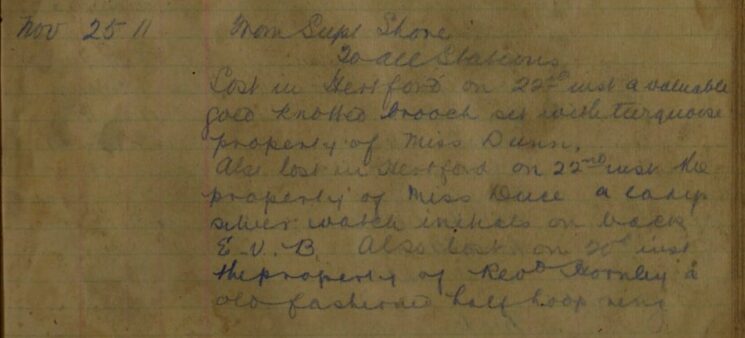 Nov 25 11 From Supt Shore
To all Stations
Lost in Hertford on 22nd inst a valuable
gold knotted brooch set with turquoise
property of Miss Dunn.
Also lost in Hertford on 22nd inst the
property of Miss a ladys
silver watch initials on back
E. V. B. Also lost on 20th inst
the property of Revd Hornley a
old fashioned half hoop ring